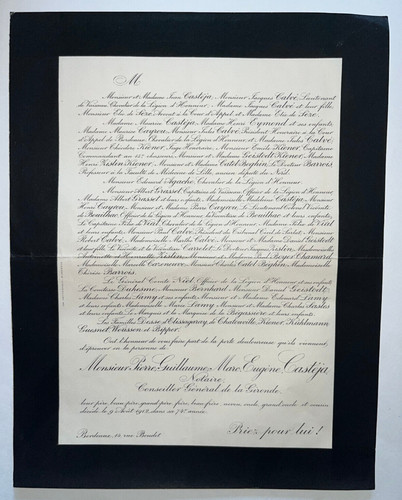 M.
Monsieur et Madame Jean Castéja, Monsieur Jacques Calvé Lieutenant
de Vaisseau Chevalier de la Légion d'Honneur, Madame Jacques Calvé et leur fille,
Monsieur Elie de Sèze Avocat à la Cour d'Appel et Madame Elie de Sèze,
Madame Maurice Castéja, Madame Henri Eymond et ses enfants,
Madame Maurice Cayrou, Monsieur Jules Calvé Président Honoraire à la Cour
d'Appel de Bordeaux Chevalier de la Légion d'Honneur et Madame Jules Calvé,
Monsieur Kiener Juge Honoraire, Monsieur Emile Kiener Capitaine
Commandant au chasseurs, Monsieur et Madame Gerstedt-Kiener, Madame
Henri Kistin-Kiener, Monsieur et Madame Catel-Beghin, Le Docteur Barrois,
Professeur à la Faculté de Médecine de Lille, ancien député du Nord,
Monsieur Edmond d'Agache Chevalier de la Légion d'Honneur,
Monsieur Albert Grasset Capitaine de Vaisseau Officier de la Légion d'Honneur,
Madame Albert Grasset et leurs enfants, Mademoiselle Madeleine Castéja, Monsieur
Henri Cayrou, Monsieur et Madame Pierre Cayrou, Le Lieutenant Colonel Vicomte
de Bouilhac Officier de la Légion d'Honneur, la Vicomtesse de Bouilhac et leurs enfants,
Le Capitaine Félix de Vial Chevalier de la Légion d'Honneur, Madame Félix de Vial
et leurs enfants, Monsieur Paul Calvé, Monsieur
Robert Calvé, Mademoiselle Marthe Calvé, Monsieur et Madame Daniel Gerstedt
Le Docteur Kistin,
Antoinette et Henriette Kistin, Monsieur et Madame Paul Boyer Chamard,
Mademoiselle Marcelle Cazeneuve, Monsieur Charles Catel-Beghin, Mademoiselle
Thérèse Barrois,
Le Général Comte Niël Officier de la Légion d'Honneur et ses enfants,
La Comtesse Duhesme, Monsieur Bernhard, Monsieur Daniel Gerstedt,
Madame Charles Lamy et ses enfants, Monsieur et Madame Edmond Lamy
et leurs enfants, Mademoiselle Marie Lamy, Monsieur et Madame Charles
et leurs enfants, Le Marquis et la Marquise de la Bégassière et leurs enfants,
Les Familles d'Etissagaray, de Chalonville, Kiener, Kuhlmann
et
Ont l'honneur de vous faire part de la perte douloureuse qu'ils viennent
d'éprouver en la personne de
Monsieur Pierre-Guillaume-Marc-Eugène Castéja,
Notaire,
Conseiller Général de la Gironde,
leur père, beau-père, grand-père, frère, beau-frère, oncle, grand-oncle et cousin
décédé le 9 Août 1912 dans sa 78e année.
Priez pour lui!
Bordeaux, rue Boudet